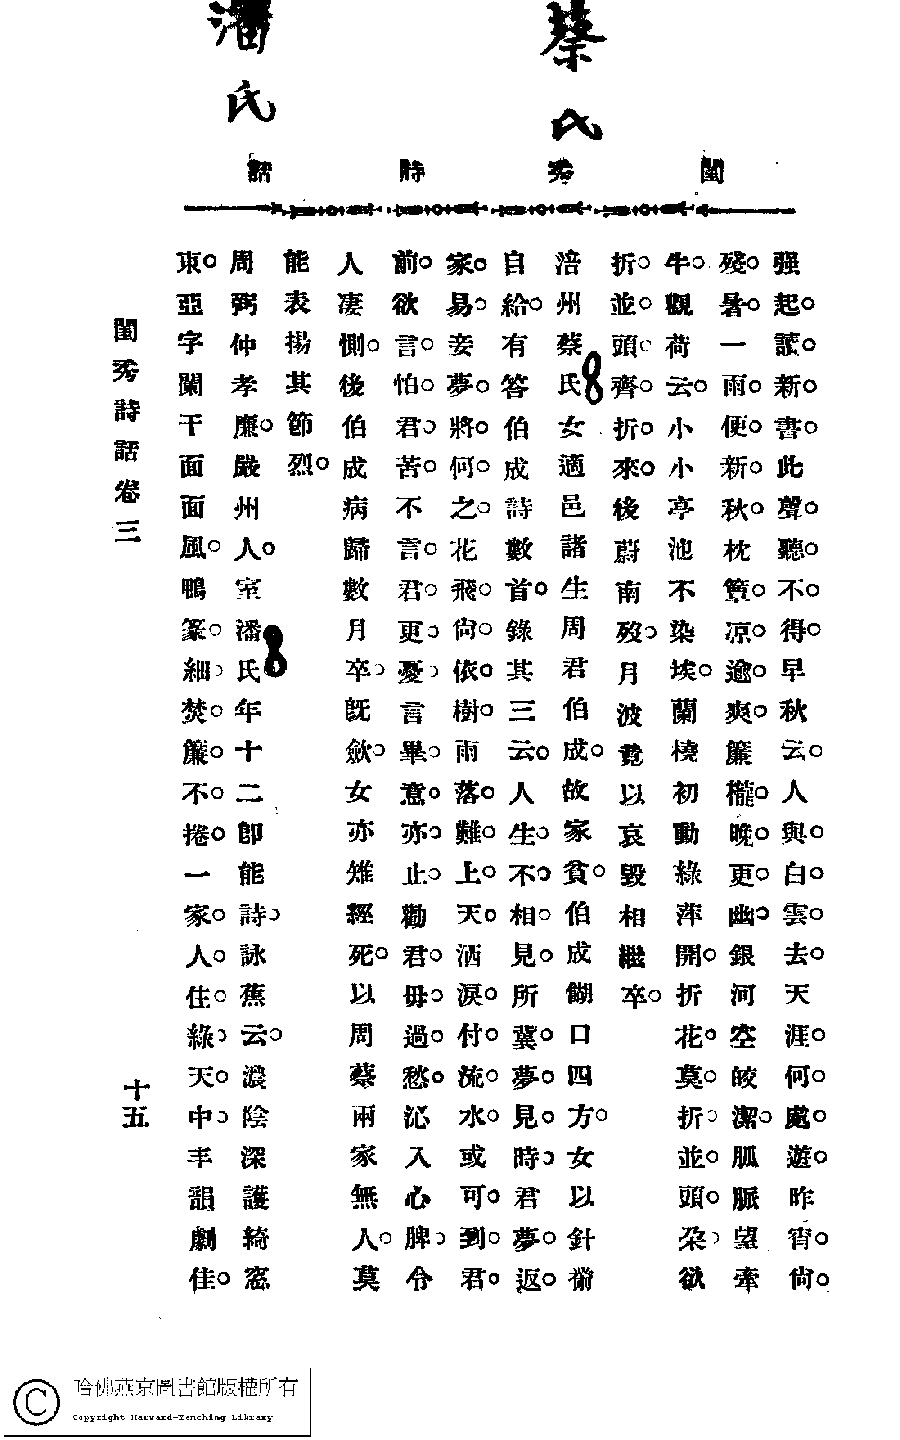 蔡氏
潘氏
閨秀詩話
强起。讀。新。書。此聲。聽。不。得。早秋云。人與。白。雲。去。天涯。何。處。遊。昨宵。尙。
殘。暑。一雨。便。新。秋。枕簟。凉。逾。爽。簾櫳。晚。更。幽。銀河空皎潔。脈脈望牽
牛。觀荷云。小小亭池不染埃。蘭橈初動綠萍開。折花。莫。折。並。頭。朶。欲
折。並。頭。齊。折。來。後蔚南歿。月波竟以哀毀相繼卒。
涪州蔡氏女適邑諸生周君伯成。故家貧。伯成餬口四方。女以針黹
自給。有答伯成詩數首。錄其三云。人生。不。相。見。所冀。夢。見。時。君夢。返。
家。易。妾夢。將。何。之。花飛。尙。依。樹。雨落。難。上。天。洒淚。付。流。水。或可。到。君。
前。欲言。怕。君。苦。不言。君。更。憂。言畢。意。亦。止。勸君。毋。過。愁。沁入心脾。令
人凄惻。後伯成病歸數月卒。旣斂。女亦雉經死。以周蔡兩家無人。莫
能表揚其節烈。
周弼仲孝廉。嚴州人。室潘氏年十二卽能詩。詠蕉云。濃陰深護綺窓
東。亞字闌干面面風。鴨篆。細。焚。簾。不捲。一家。人。住。綠。天。中。丰韻劇佳。
閨秀詩話卷三
十五
哈佛燕京圖書館版權所有
Copyright Harvard-Yenching Library